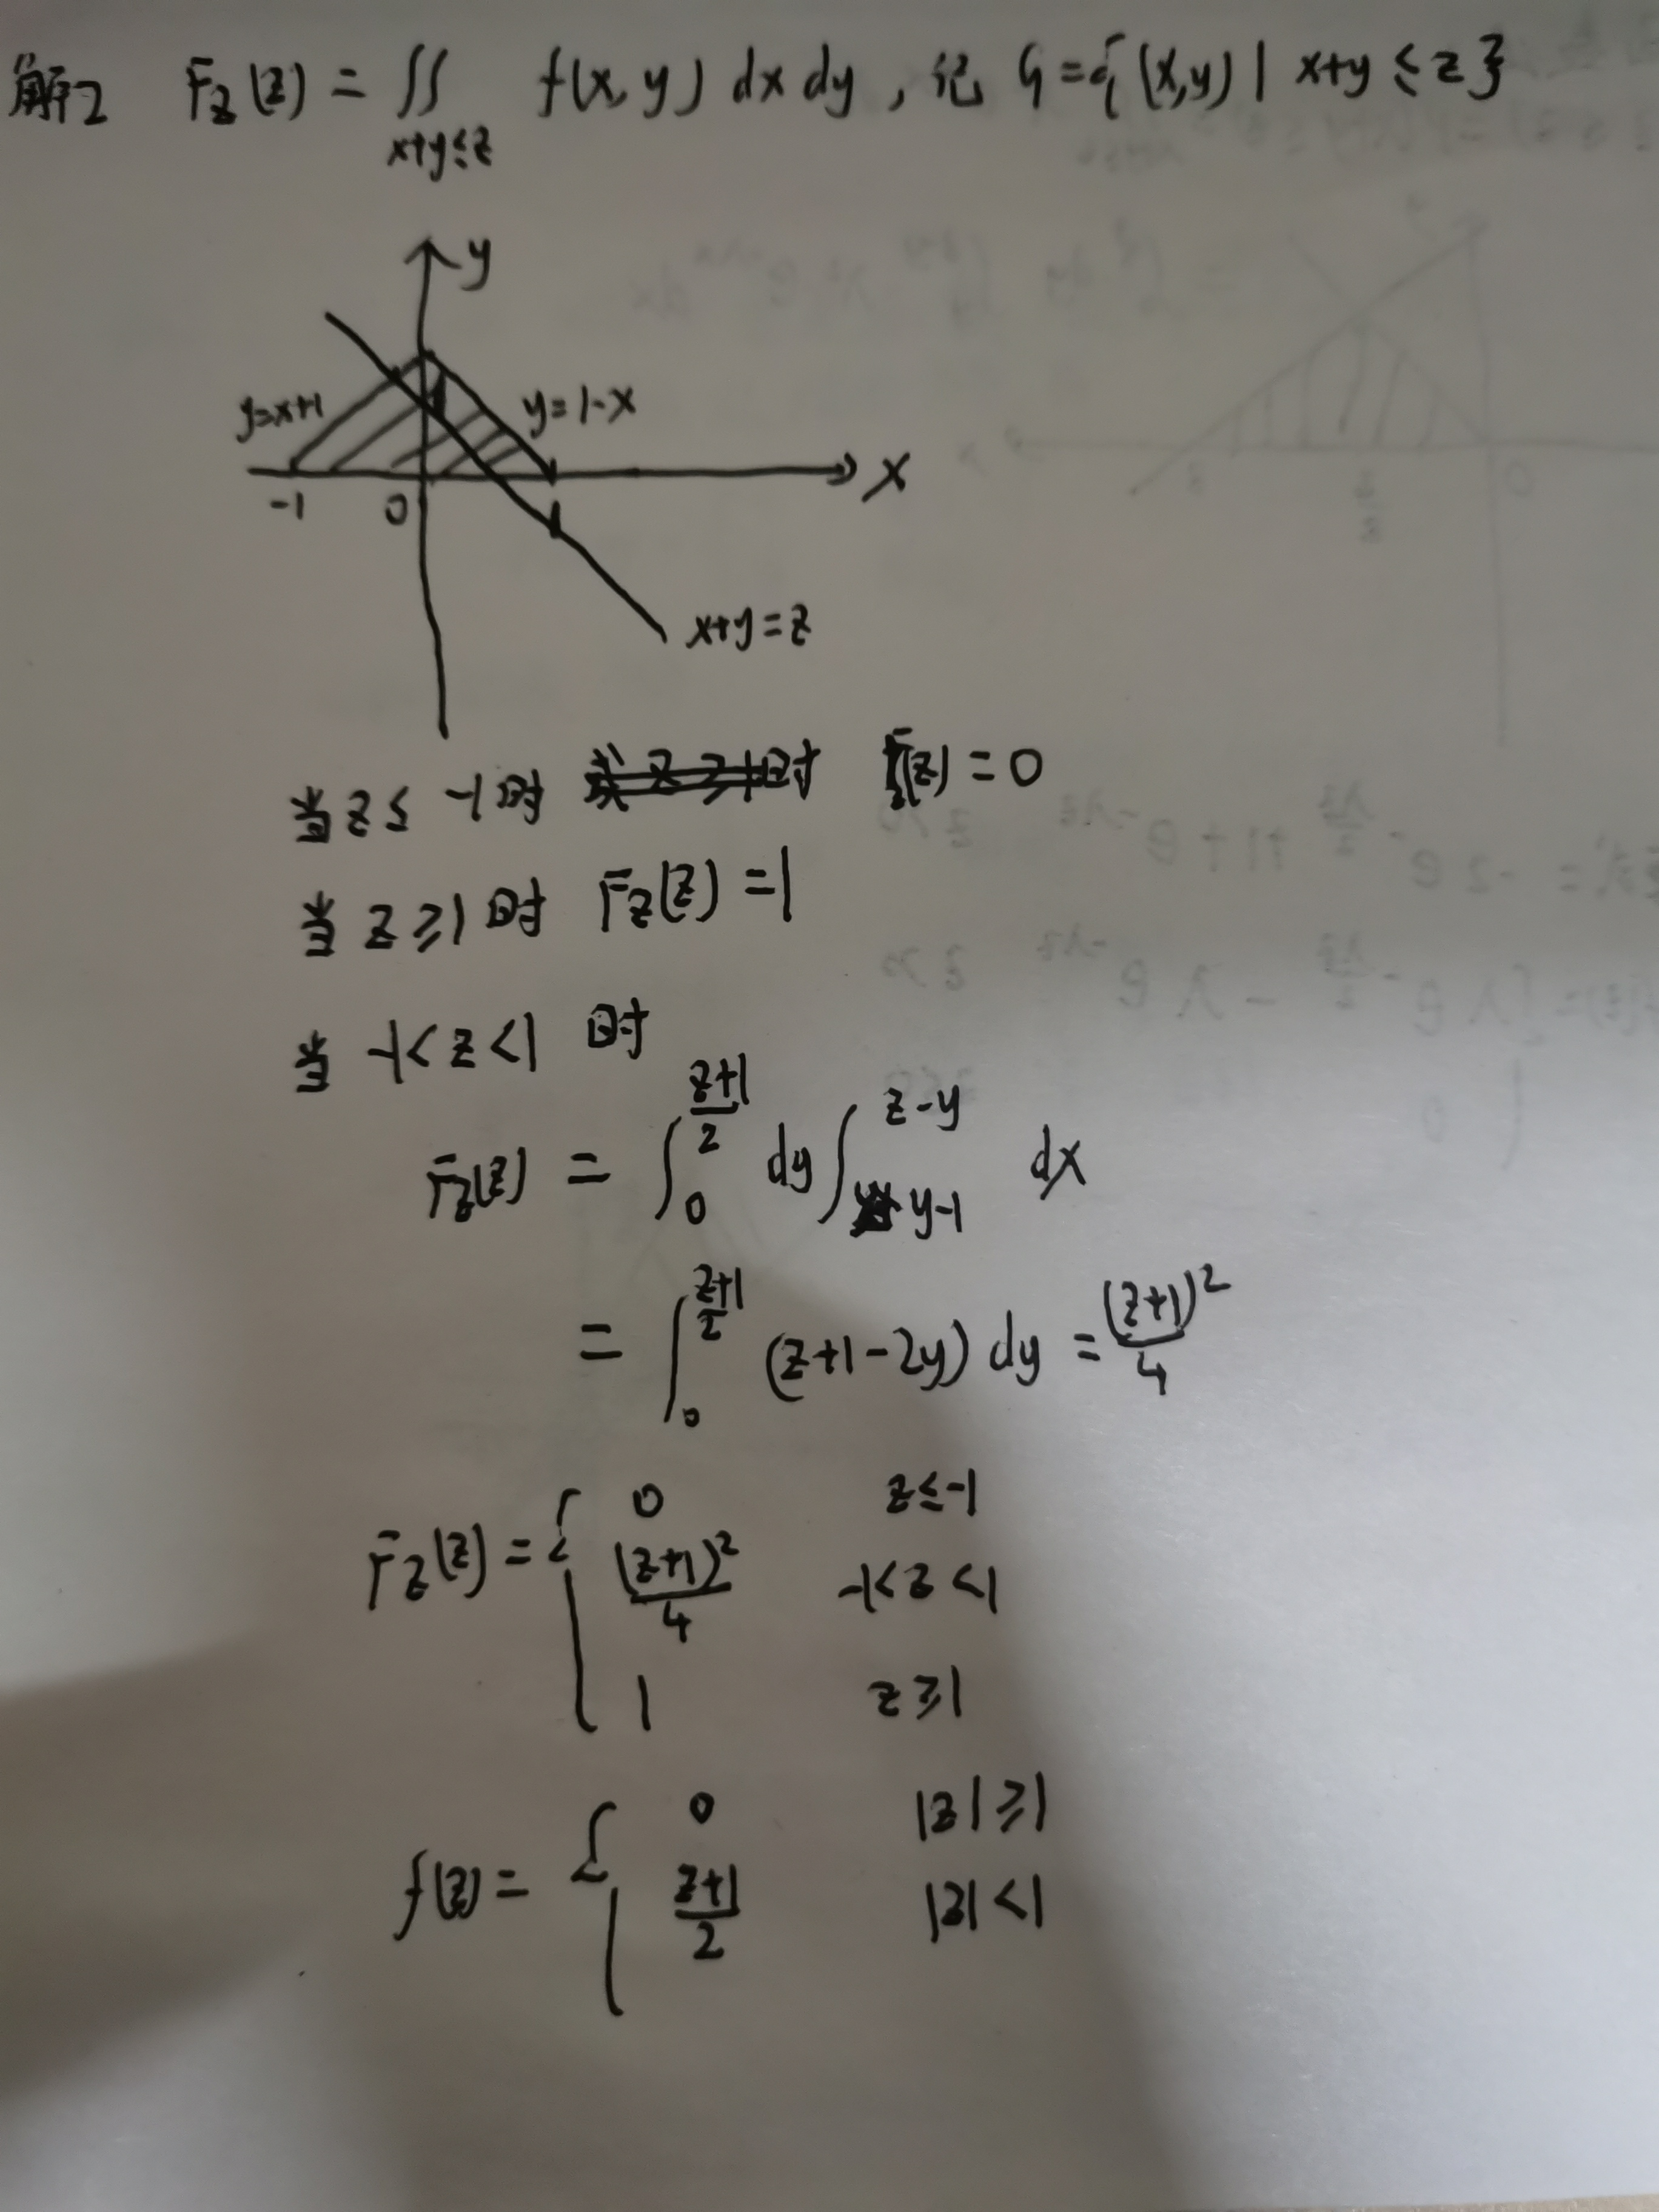 解2 F_Z(z) = ∬_{x+y≤z} f(x,y) dx dy , 记 G = {(x,y) | x+y ≤ z}
y
y=x+1
y=1-x
-1
0
1
x
x+y=z
当 z ≤ -1 时 或 z ≥ 1 时 F_Z(z) = 0
当 z ≥ 1 时 F_Z(z) = 1
当 -1 < z < 1 时
F_Z(z) = ∫_0^{\frac{z+1}{2}} dy ∫_{y-1}^{z-y} dx
= ∫_0^{\frac{z+1}{2}} (z+1-2y) dy = \frac{(z+1)^2}{4}
F_Z(z) = { 0 z ≤ -1
\frac{(z+1)^2}{4} -1 < z < 1
1 z ≥ 1
f(z) = { 0 |z| ≥ 1
\frac{z+1}{2} |z| < 1